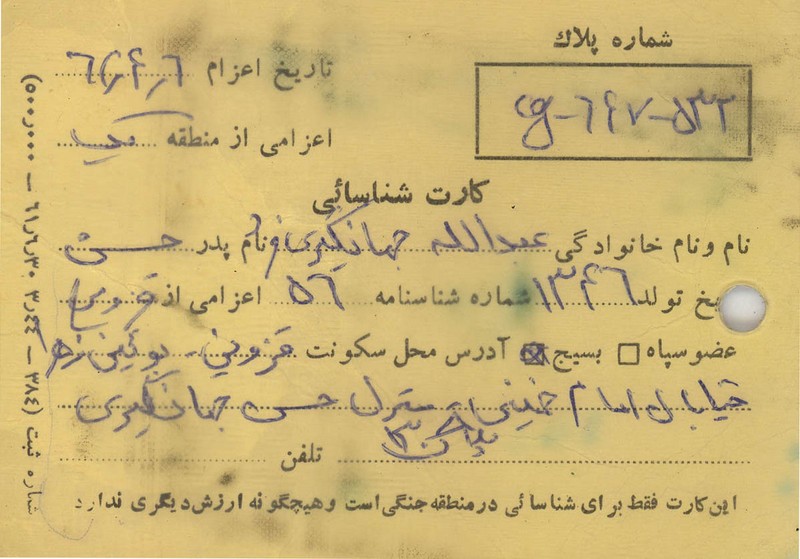 شماره پلاك
تاریخ اعزام ۶۲,۴,۶
۵۳۲-۶۴۷-
اعزامی از منطقه یک
کارت شناسائی
نام و نام خانوادگی عبدالله جهانگیری فر نام پدر حسن
یخ تولد ۱۳۴۶ شماره شناسنامه ۵۶ اعزامی از قزوین
عضو سپاه بسیج آدرس محل سکونت قزوین - بوئین زهرا
خیابان امام خمینی منزل حسن جهانگیری
پلاک ۳
تلفن
این کارت فقط برای شناسائی در منطقه جنگی است و هیچگونه ارزش دیگری ندارد
شماره ثبت (۳۸۴ — ۳٫۴۴ ۶۱٫۶٫۳۰ — ۵۰۰٫۰۰۰)